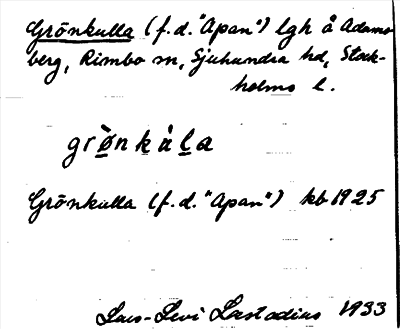 Grönkulla (f.d. "Apan") lgh å Adams-
berg, Rimbo sn, Sjuhundra hd, Stock-
holms l.
grø̀nkåla
Grönkulla (f.d. "Apan") kb 1925
Lars-Levi Læstadius 1933